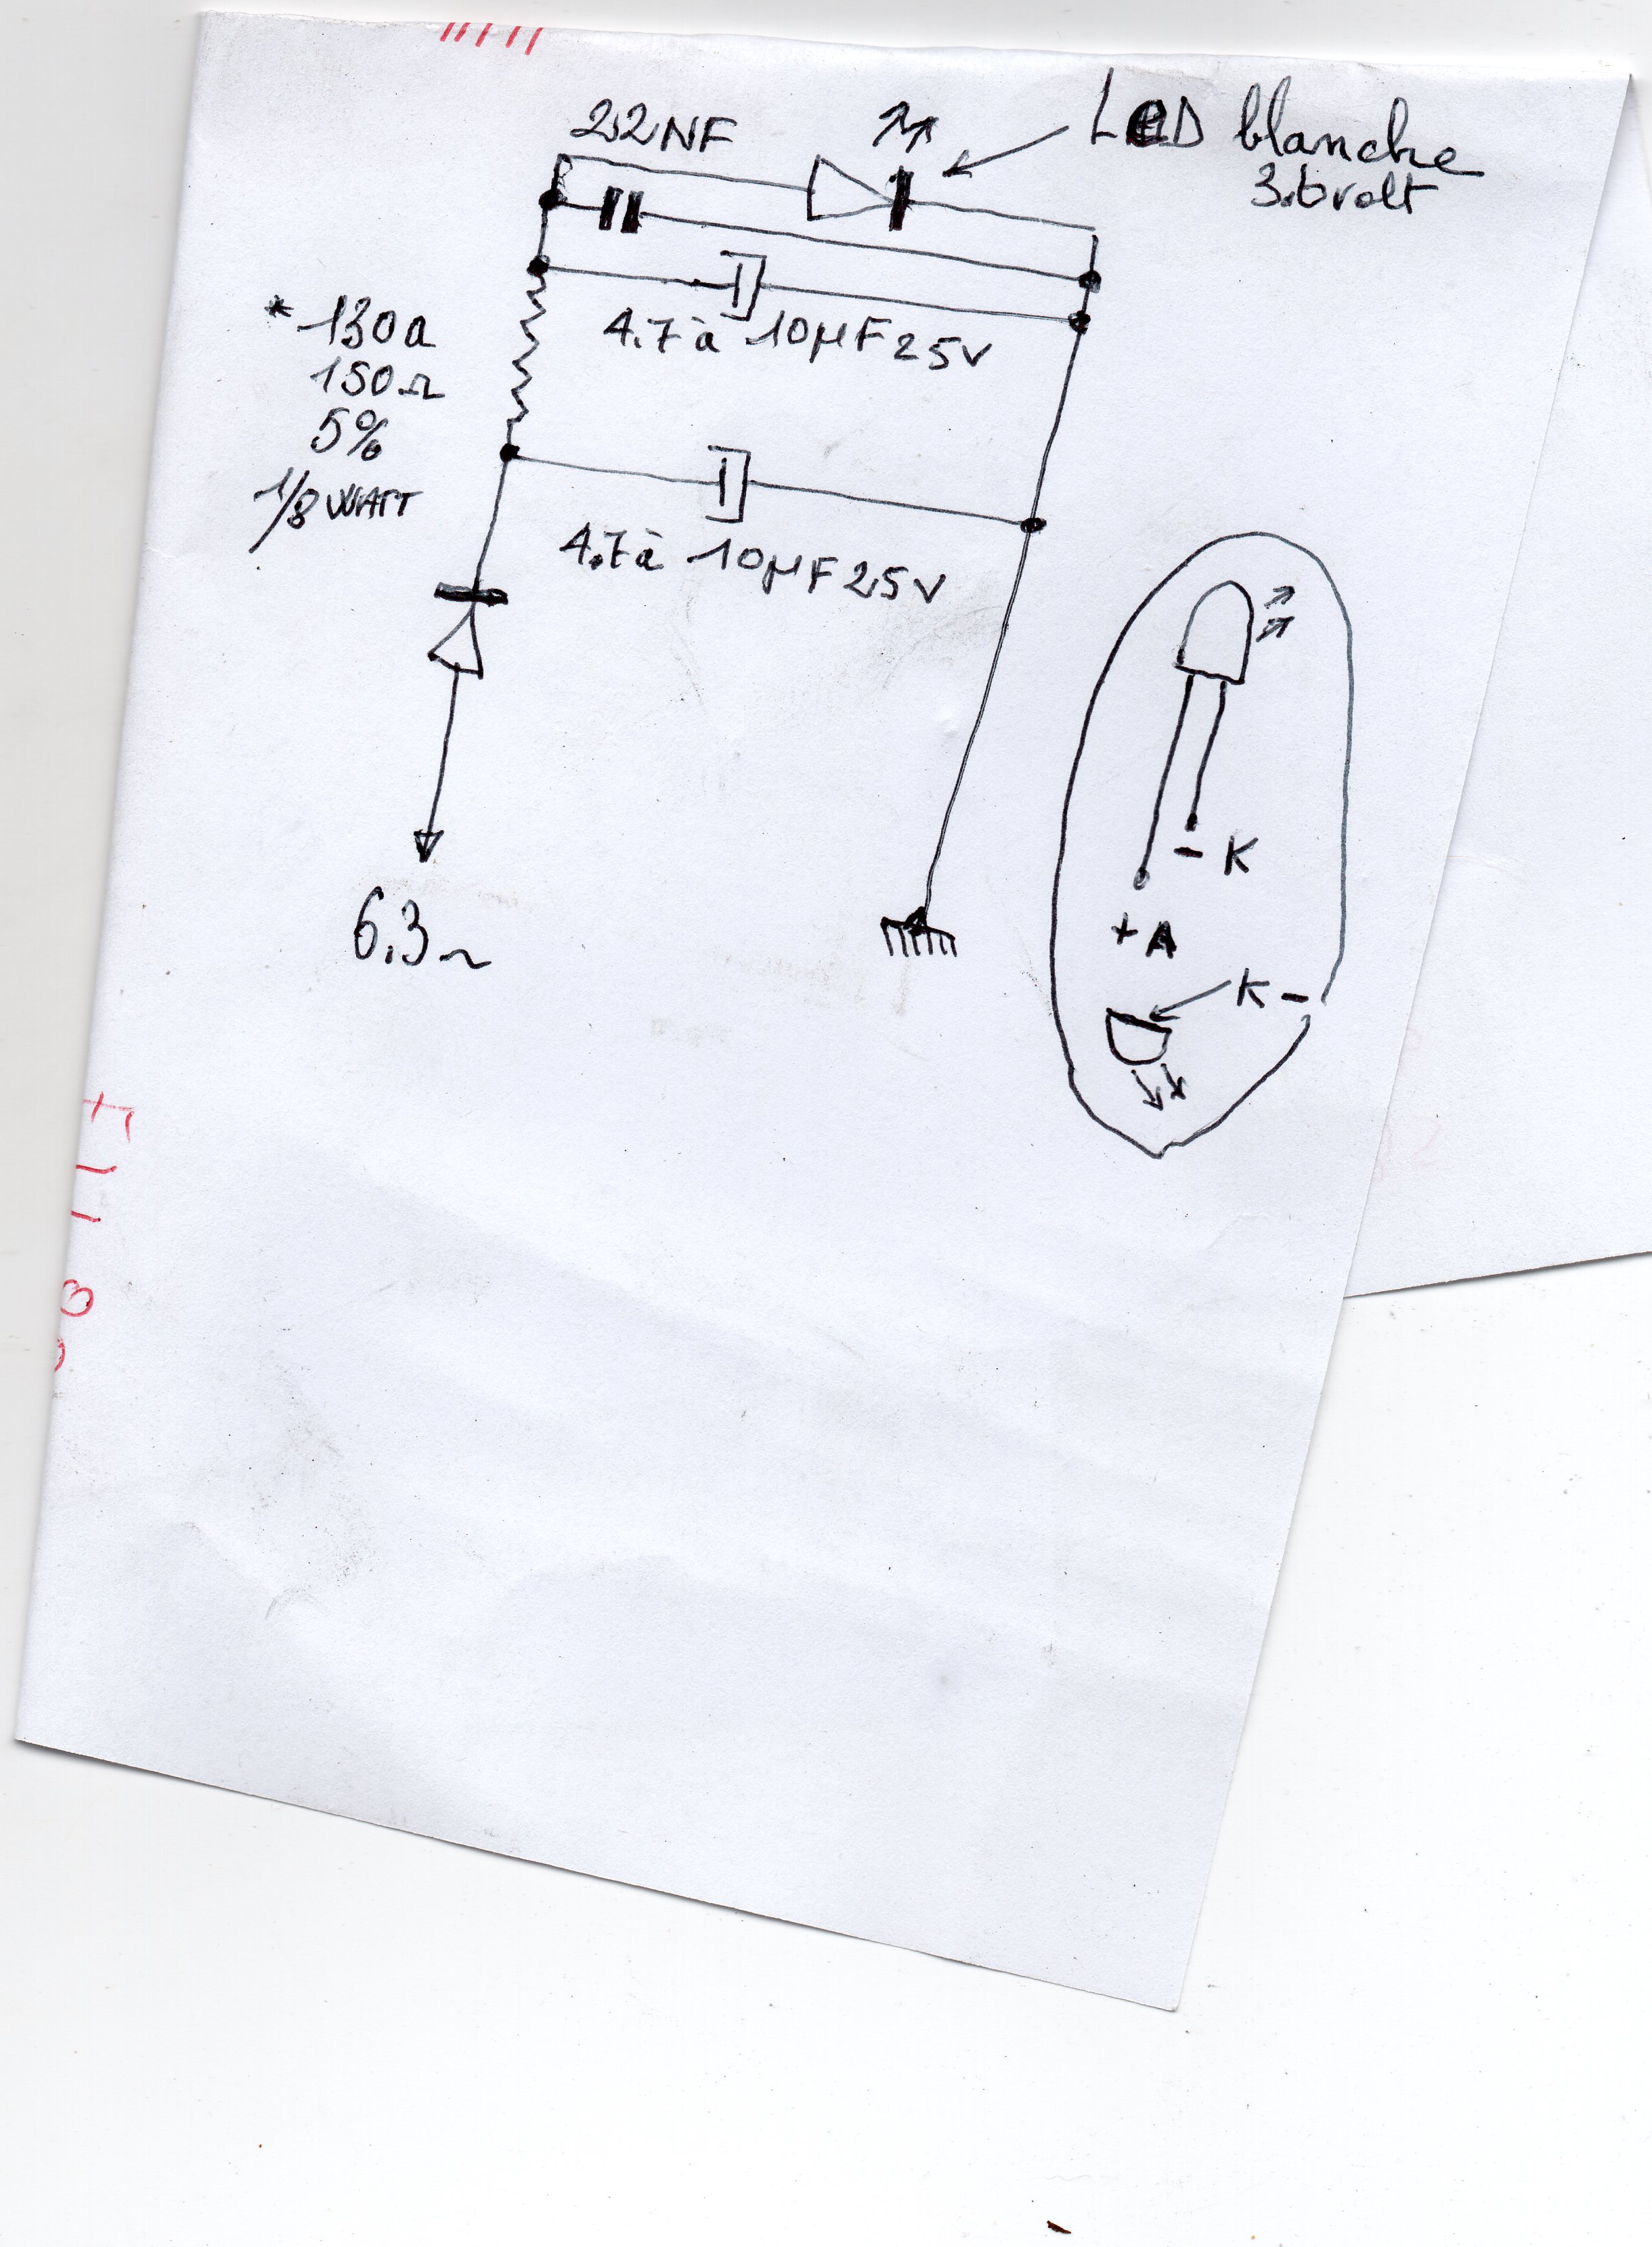 22NF
LED blanche
3.6 volt
* 130 à
150Ω
5%
1/8 WATT
4.7 à 10µF 25V
4.7 à 10µF 25V
6.3~
- K
+ A
K -